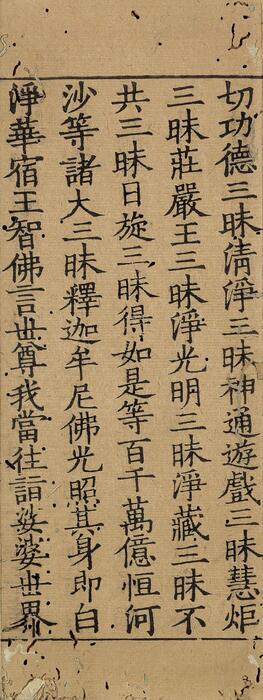 切功德三昧清淨三昧神通遊戲三昧慧炬
三昧莊嚴王三昧淨光明三昧淨藏三昧不
共三昧日旋三昧得如是等百千萬億恒河
沙等諸大三昧釋迦牟尼佛光照其身即白
淨華宿王智佛言世尊我當往詣娑婆世界